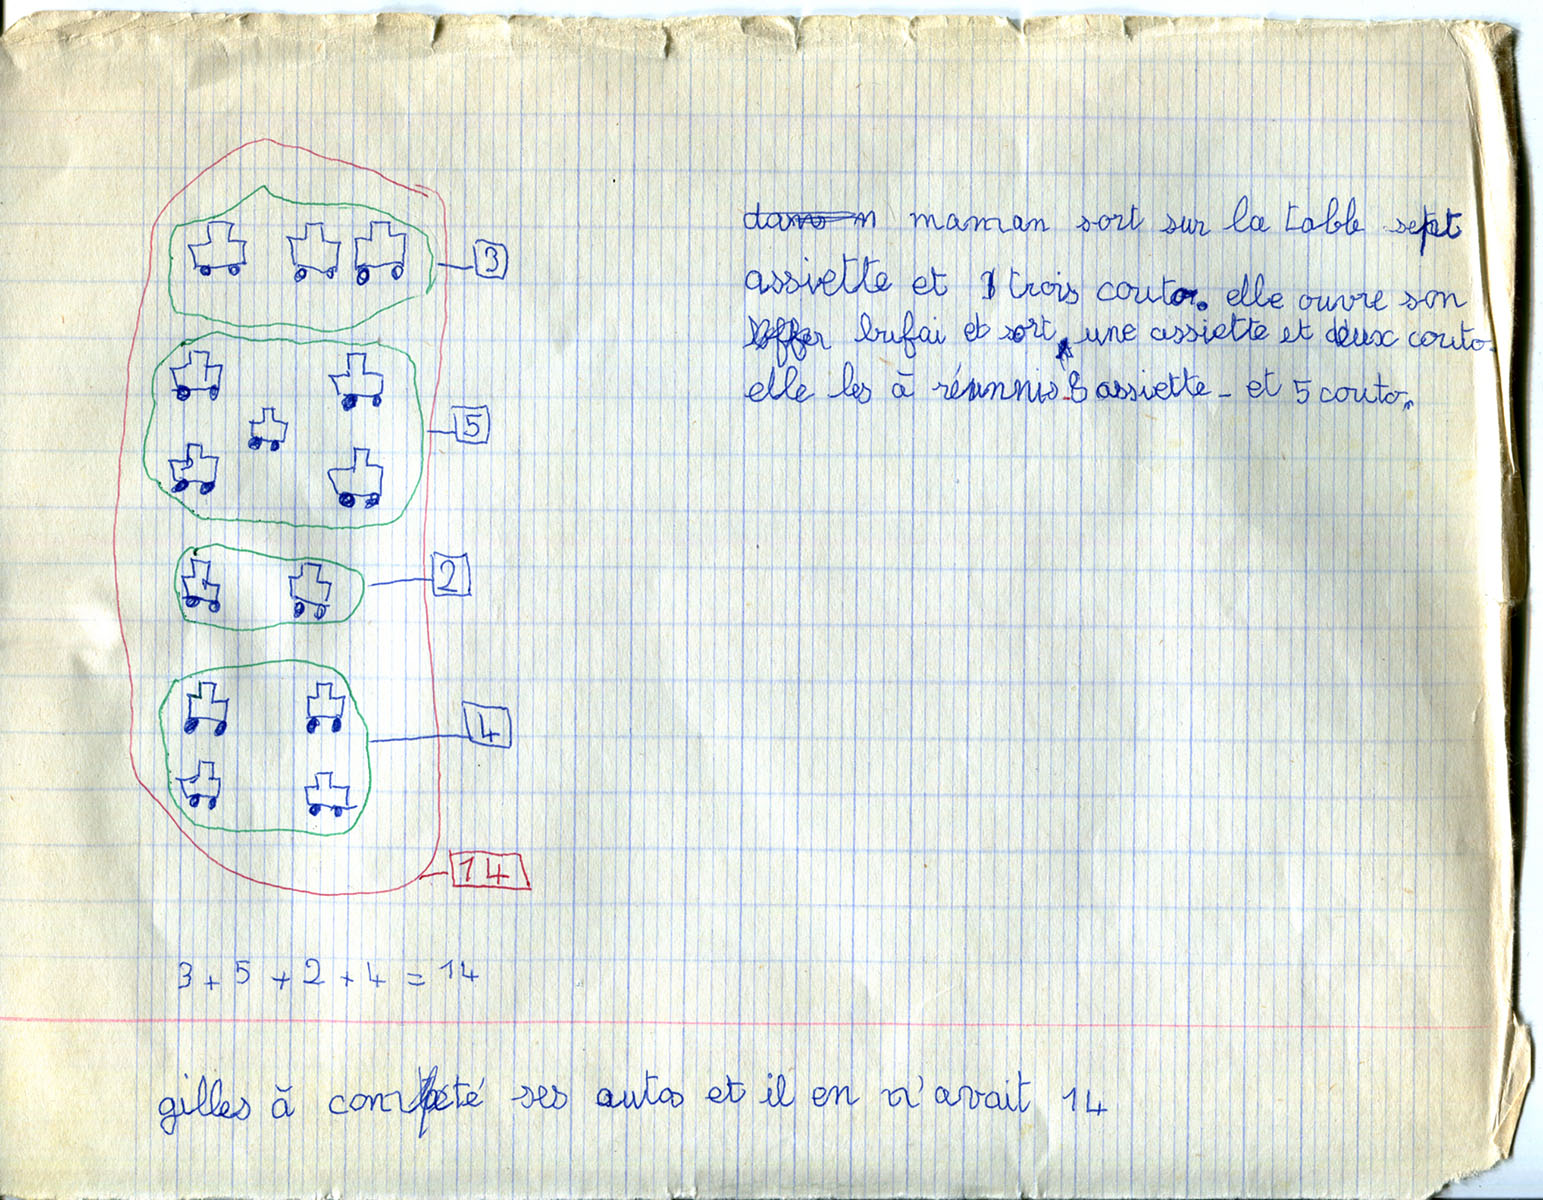 3
5
2
4
14
3 + 5 + 2 + 4 = 14
gilles à compté ses autos et il en n'avait 14
maman sort sur la table sept
assiette et trois couto. elle ouvre son
bufai et sort une assiette et deux couto.
elle les à réunnis 8 assiette - et 5 couto.